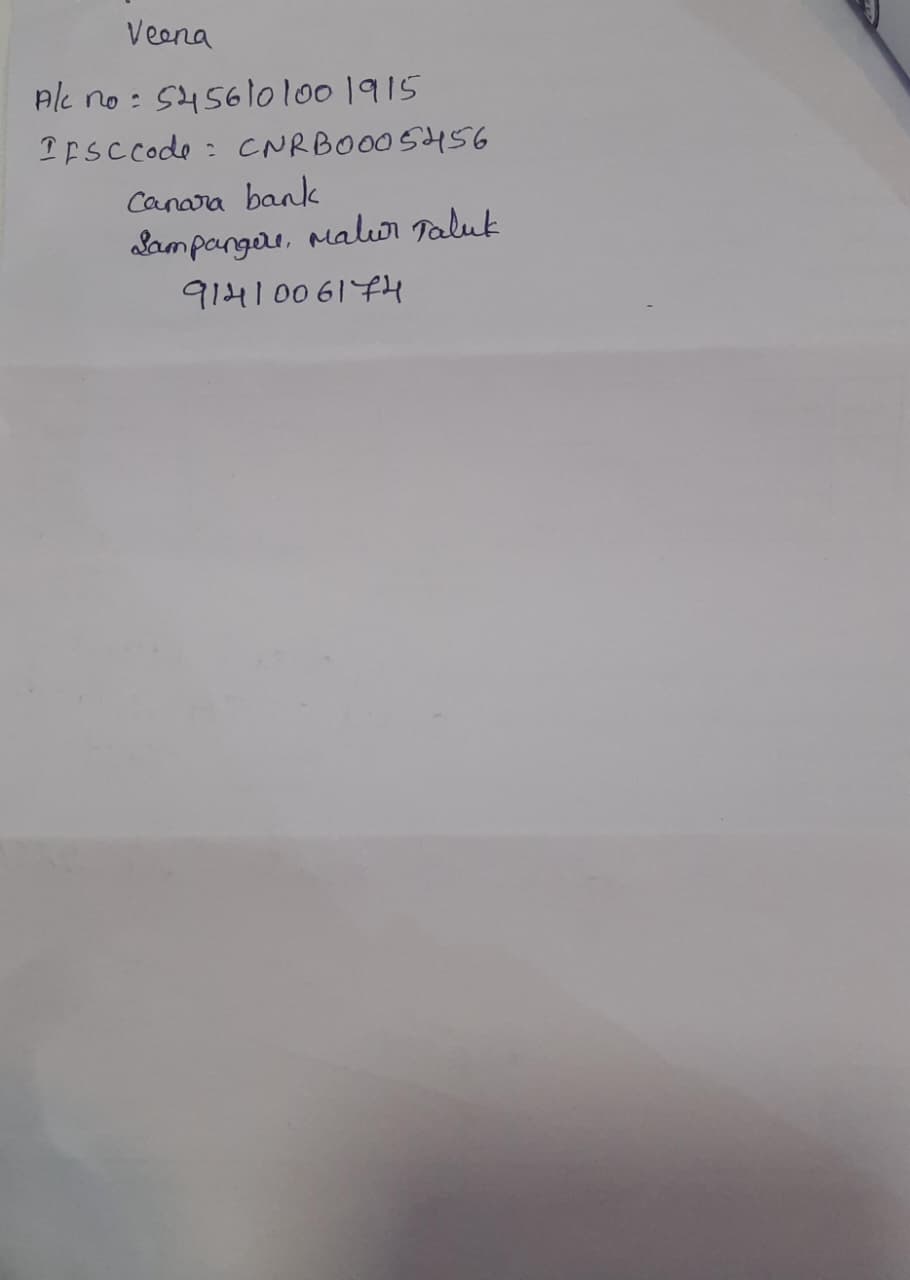 Veena
A/c no : 5456101001915
IFSC Code : CNRB0005456
Canara bank
Sampangere, Malur Taluk
9141006174